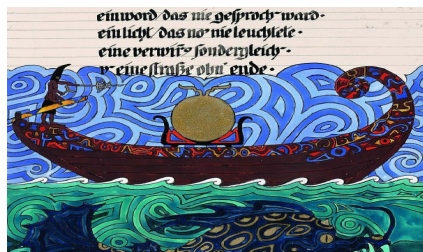 ein word/das nie gesproch- ward·
ein licht/das no- nie leuchtete·
eine verwirr- sondergleich-
v- eine straße ohn' ende·